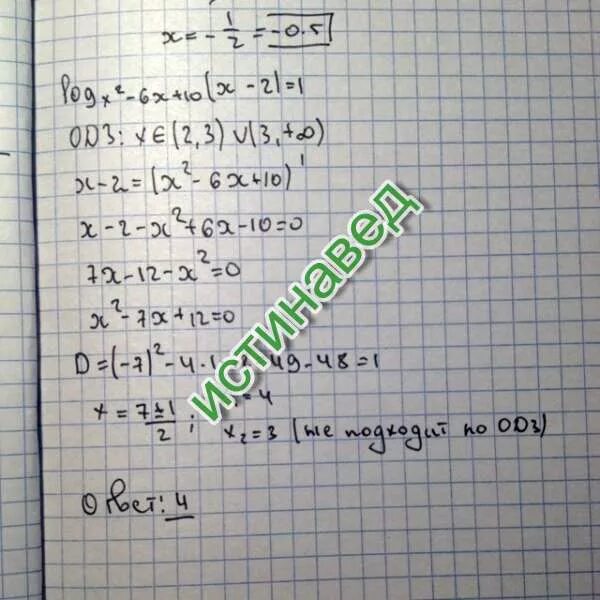 x = - 1/2 = -0.5
log x²-6x+10 (x-2)=1
ОДЗ: x∈(2,3)∪(3,+∞)
x-2=(x²-6x+10)¹
x-2-x²+6x-10=0
7x-12-x²=0
x²-7x+12=0
D=(-7)²-4·1 49-48=1
x = 7±1/2 ; =4
x₂=3 (не подходит по ОДЗ)
Ответ: 4
истинавед